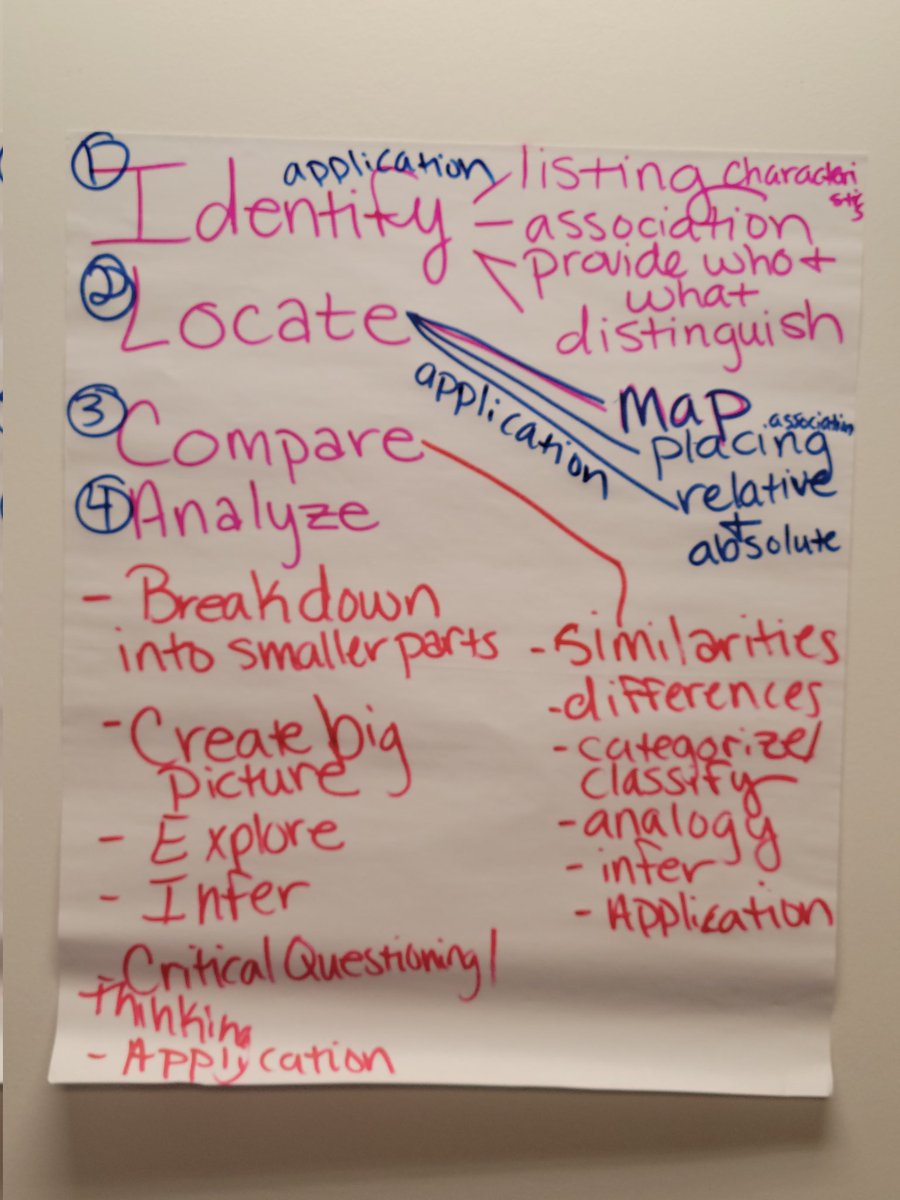 ① Identify
application
listing characteri
stics
- association
provide who +
what
distinguish
② Locate
application
Map
placing
.association
relative
+
absolute
③ Compare
- Similarities
- differences
- categorize/
classify
- analogy
- infer
- Application
④ Analyze
- Breakdown
into smaller parts
- Create big
picture
- Explore
- Infer
- Critical Questioning/
Thinking
- Application